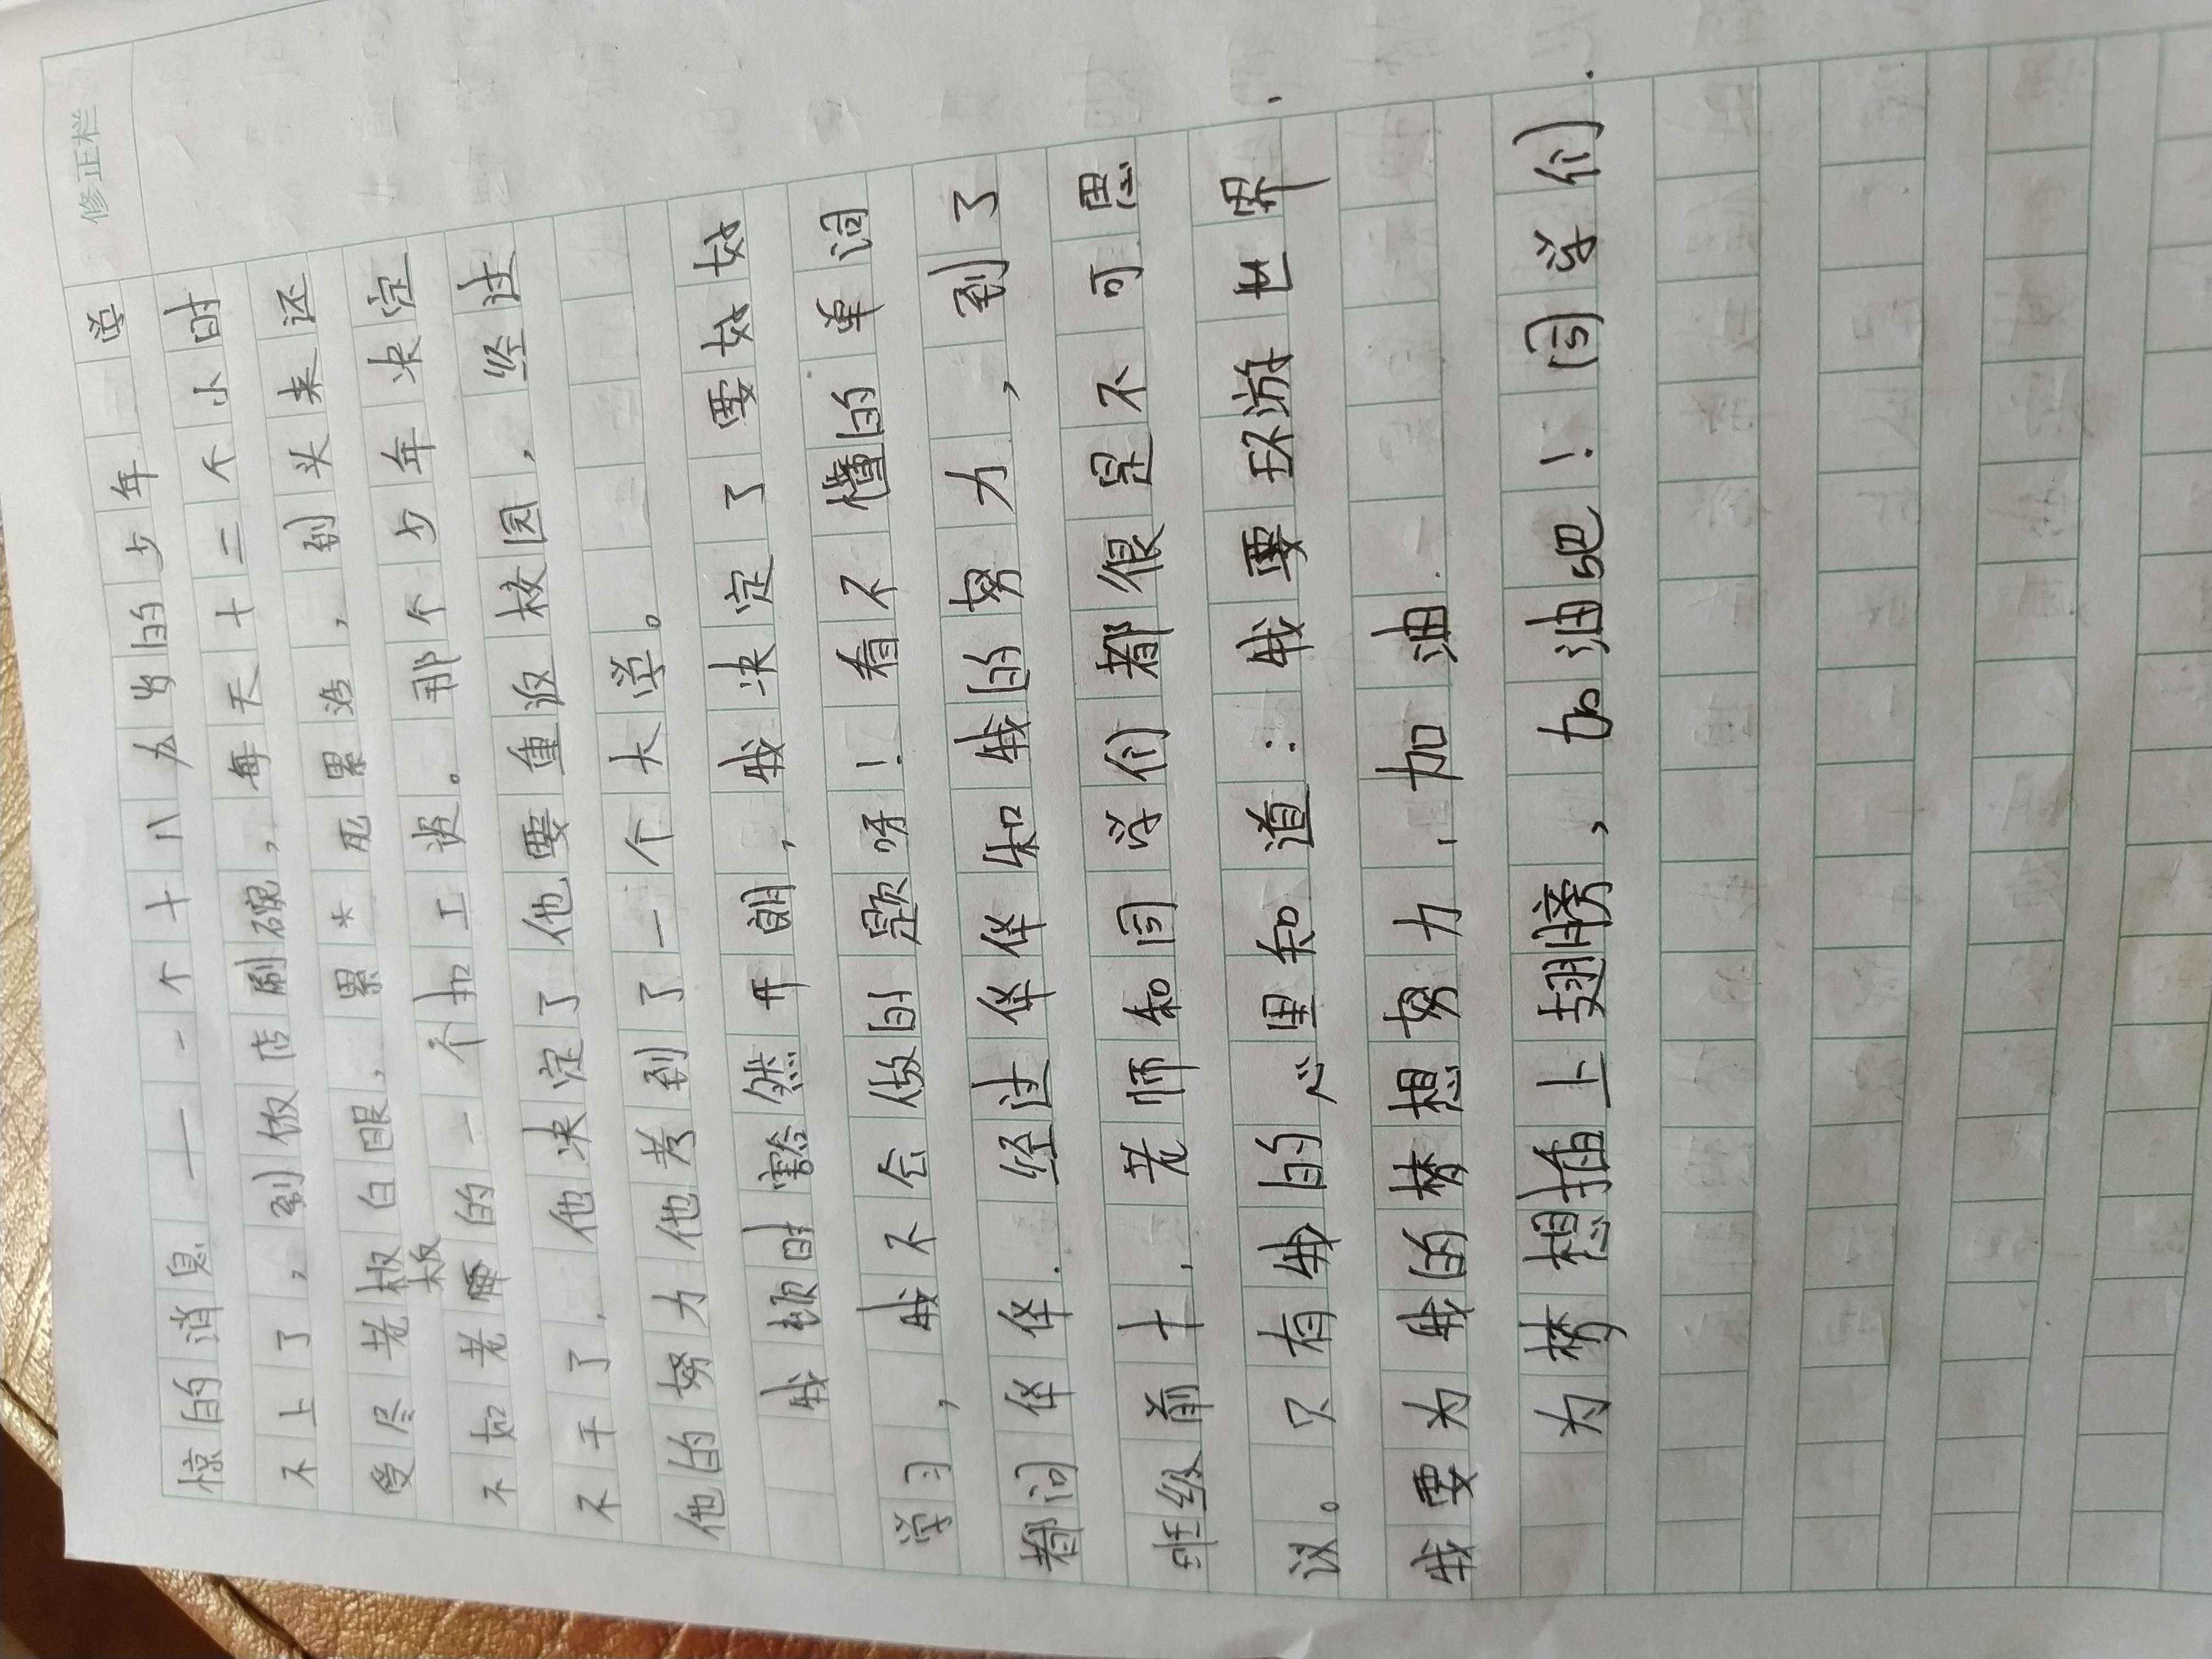 修正栏
惊的消息——一个十八九岁的少年 学
不上了，到饭店刷碗，每天十二个小时
受尽老板白眼，累*死累活，到头来还
不如老板的一个扣工资。那个少年决定
不干了，他决定了他要重返校园，经过
他的努力他考到了一个大学。
我顿时豁然开朗，我决定了要好好
学习，我不会做的题呀！看不懂的单词
都问佯佯。经过佯佯和我的努力，到了
班级前十，老师和同学们都很是不可思
议。只有我的心里知道：我要环游世界，
我要为我的梦想努力，加油.
为梦想插上翅膀，加油吧！同学们.